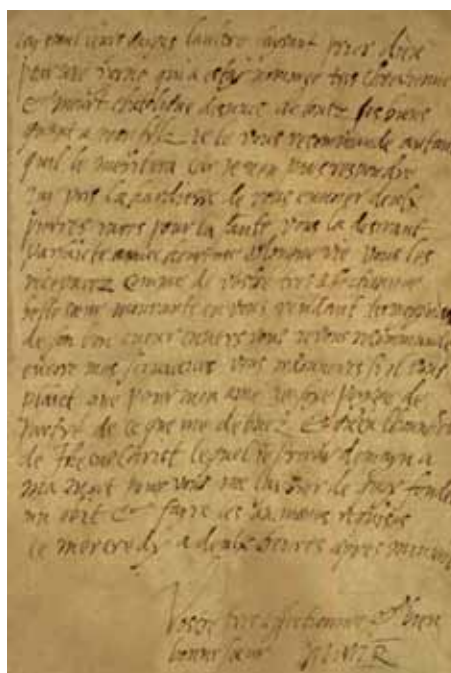 pour une royne qui a estay nommee tres chrestienne
et meurt catholique desnuee de toutz ses biens
quant a mon filz je le vous recommande autant
quil le meritera car je nen puis respondre
Jay pris la hardiesse de vous envoier deulx
pierres rares pour la sante vous la desirant
parfaicte avec heureuse et longue vie vous les
recevrez comme de vostre tres affectionnee
belle soeur mourante en vous rendant tesmoygnage
de son bon cueur envers vous je vous recommande
encore mes serviteurs vous si il vous
plaict que pour mon ame je soye payee de
partye de ce que me debvez et
de Jhesus Christ lequel je priray demayn a
ma mort pour vous me laysser de quoy fonder
un obit et faire les aulmosnes requises
ce mercredy a deulx heures apres minuit
Vostre tres affectionnee et bien
bonne soeur MARI R